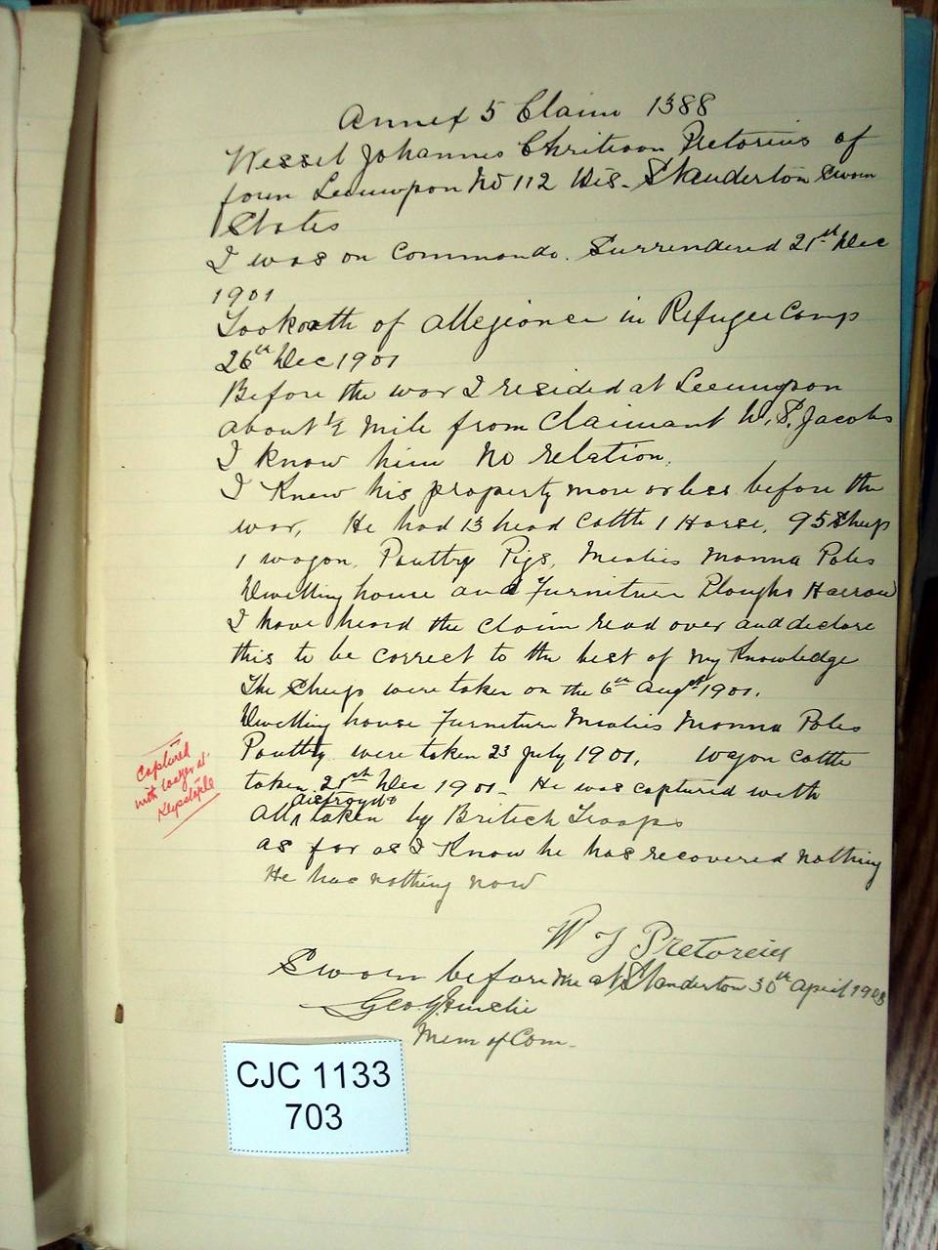 Annex 5 Claim 1388
Wessel Johannes Chritiaan Pretorius of
farm Leeuwpon No 112 Dis. Standerton sworn
States
I was on Commando. Surrendered 21st Dec
1901
Took oath of allegiance in Refugee Camp
26th Dec 1901
Before the war I resided at Leeuwpon
about 1/2 mile from Claimant W. S. Jacobs
I know him No relation.
I Knew his property more or less before the
war, He had 13 head Cattle 1 Horse, 95 Sheep
1 wagon, Poultry Pigs, Mealies Manna Poles
Dwelling house and Furniture Ploughs Harrow
I have heard the Claim read over and declare
this to be correct to the best of my Knowledge
The Sheep were taken on the 6th Augst 1901.
Dwelling house Furniture Mealies Manna Poles
Poultry were taken 23 July 1901, wagon cattle
taken 21st Dec 1901 - He was captured with
All destroyed & taken by British Troops
as far as I Know he has recovered nothing
He has nothing now
W J Pretorius
Sworn before me at Standerton 30th April 1903
Geo
Mem of Com.
Captured
with laager at
CJC 1133
703